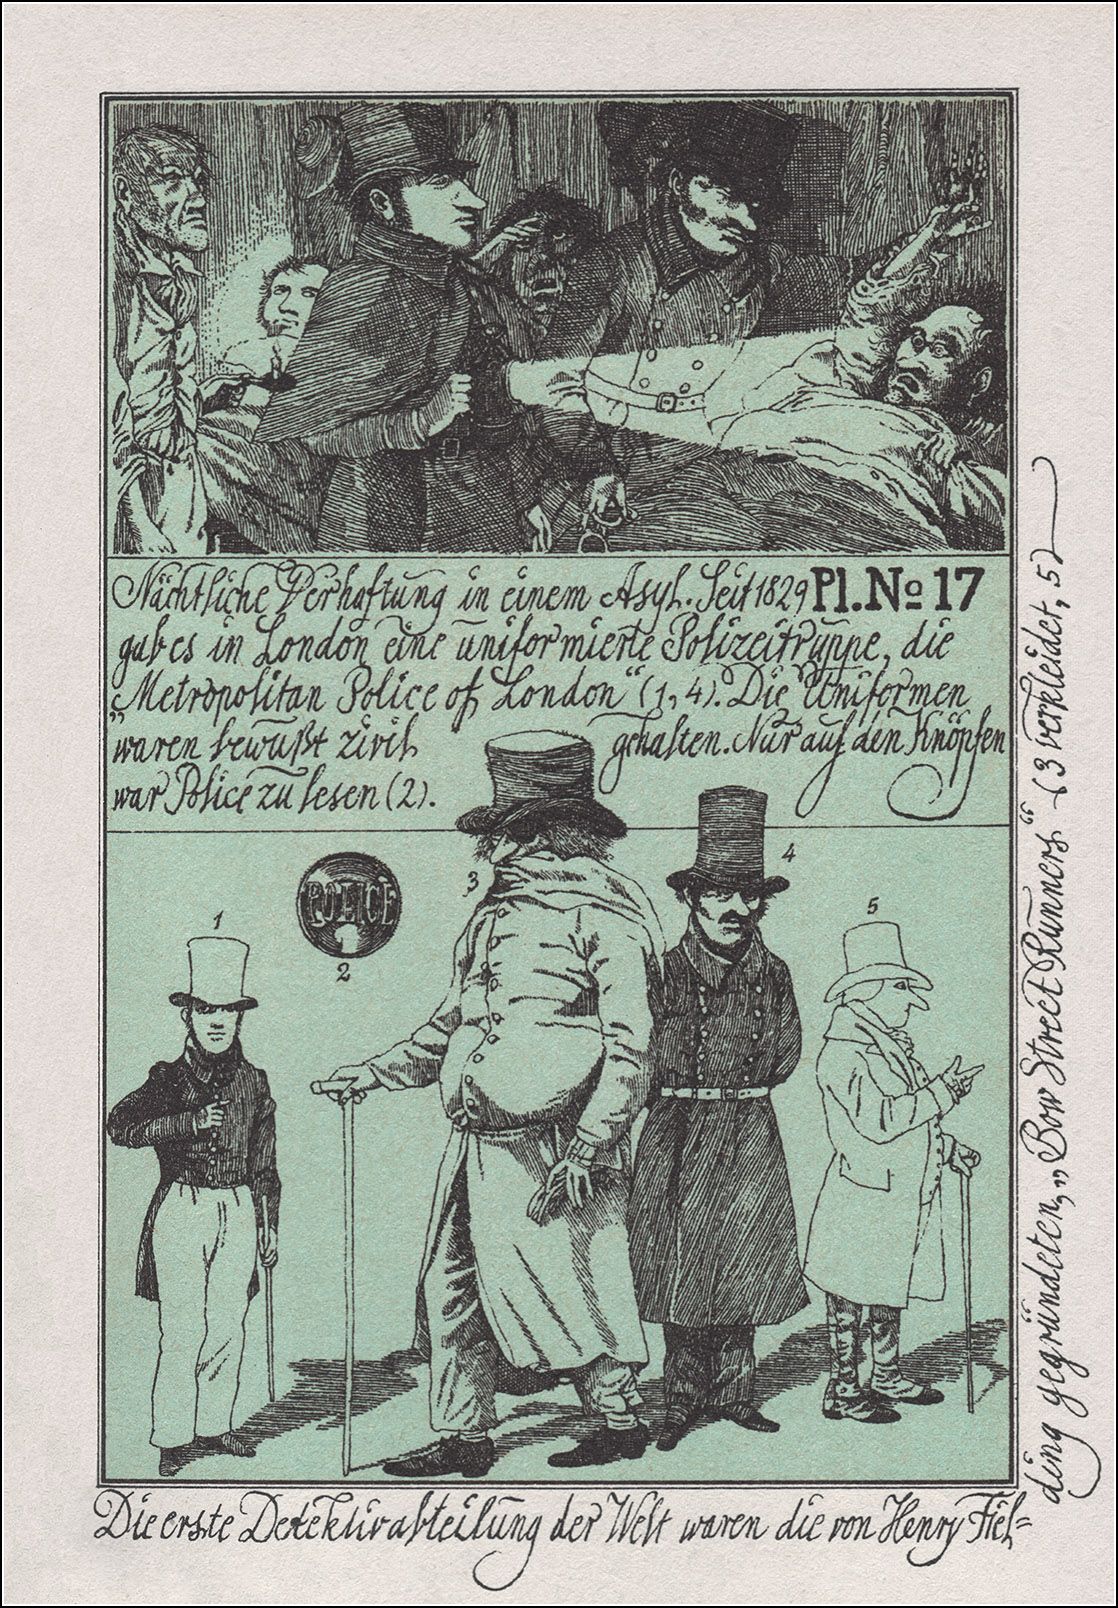 Nächtliche Verhaftung in einem Asyl. Seit 1829
Pl. No 17
gab es in London eine uniformierte Polizeitruppe, die
„Metropolitan Police of London“ (1, 4). Die Uniformen
waren bewußt zivil gehalten. Nur auf den Knöpfen
war Police zu lesen (2).
1
POLICE
1
2
3
4
5
Die erste Detektivabteilung der Welt waren die von Henry Fiel=
ding gegründeten „Bow Street Runners“ (3 verkleidet, 5)